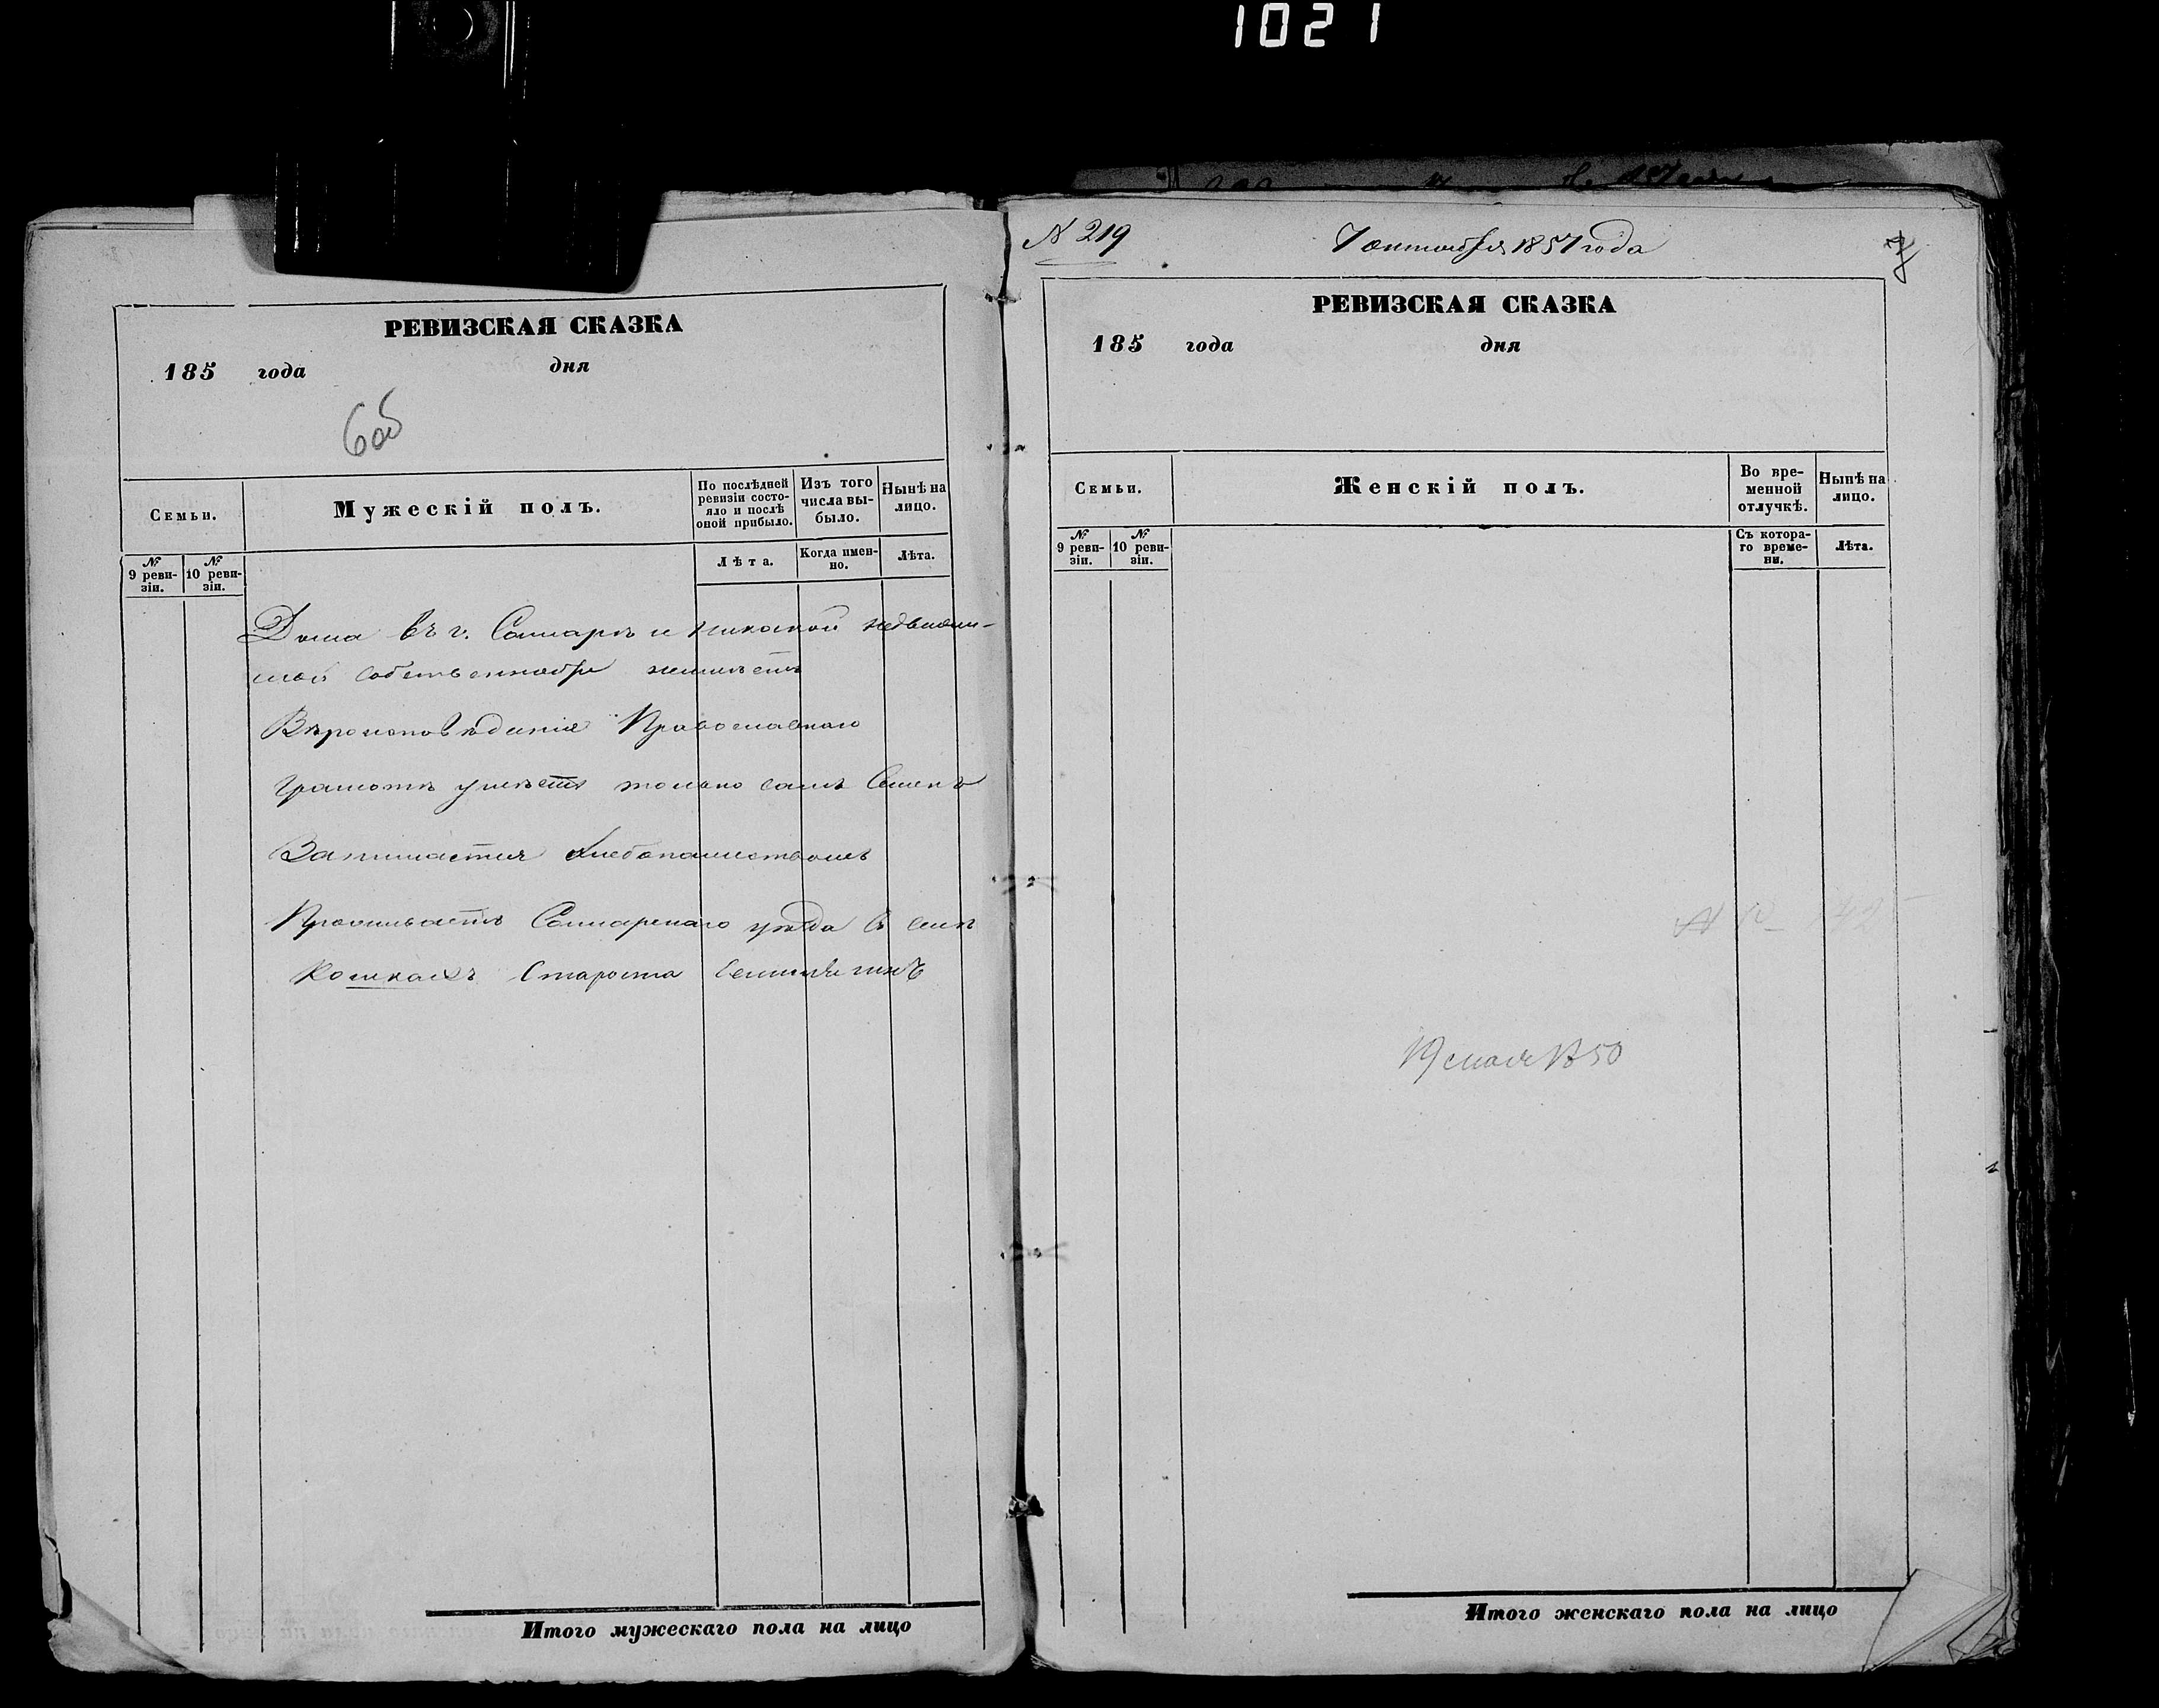 1021
РЕВИЗСКАЯ СКАЗКА
185 года дня
6об
Семьи.
Мужескій полъ.
По послѣдней ревизіи состо-
яло и послѣ оной прибыло.
Изъ того числа вы-
было.
Нынѣ на лицо.
№ 9 реви-
зіи.
№ 10 реви-
зіи.
Лѣта.
Когда имен-
но.
Лѣта.
Дома въ г. Самарѣ и никакой недвижи-
мой собственности неимѣетъ
Вѣроисповѣданія Православнаго
Грамотѣ умѣетъ только самъ Семенъ
Занимается хлебопашествомъ
Проживаетъ Самарскаго уѣзда въ селѣ
Кошкахъ Староста
Итого мужескаго пола на лицо
№ 219
7 октября 1857 года
7
РЕВИЗСКАЯ СКАЗКА
185 года дня
Семьи.
Женскій полъ.
Во вре-
менной отлучкѣ.
Нынѣ на лицо.
№ 9 реви-
зіи.
№ 10 реви-
зіи.
Съ котора-
го време-
ни.
Лѣта.
19 мая 1850
Итого женскаго пола на лицо